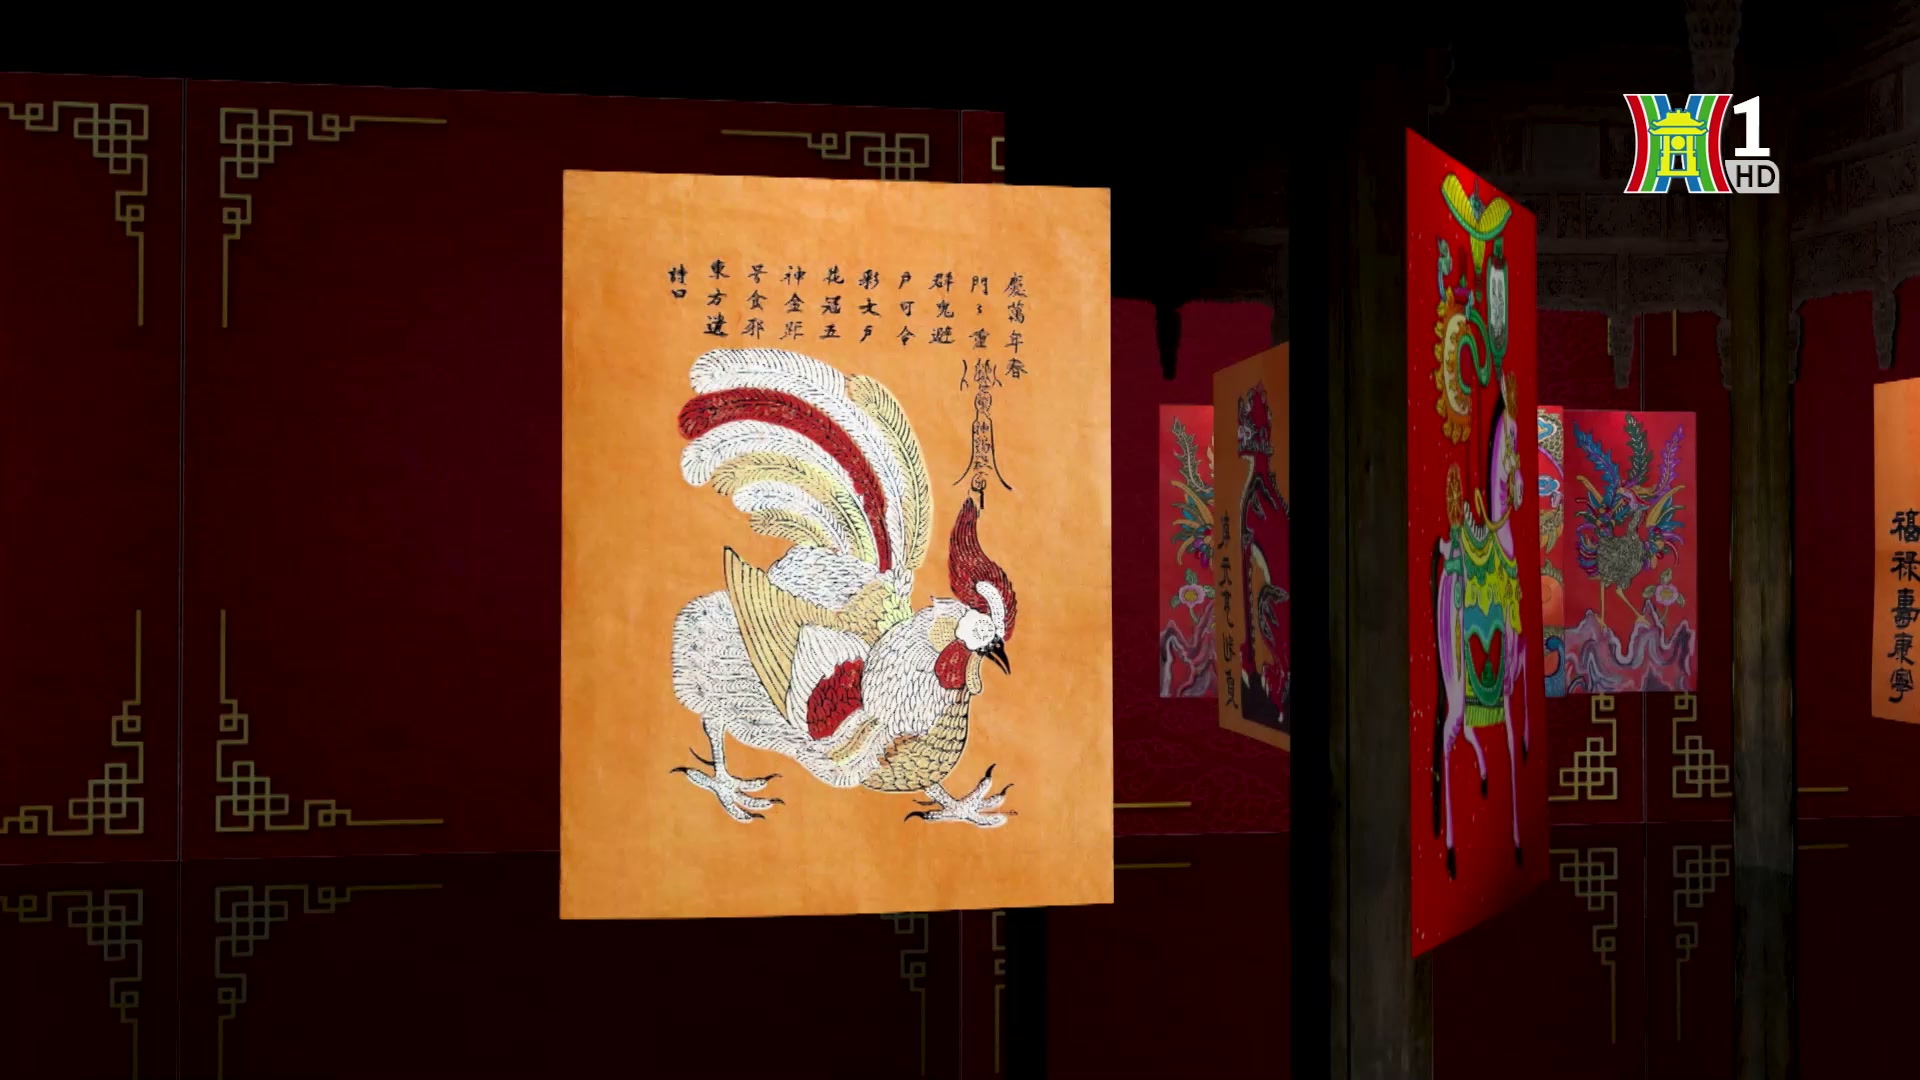 詩曰
東方遺
号食邪
神金距
花冠五
彩文戶
戶可令
群鬼避
門々重
慶萬年春
福祿壽康寧
1
HD